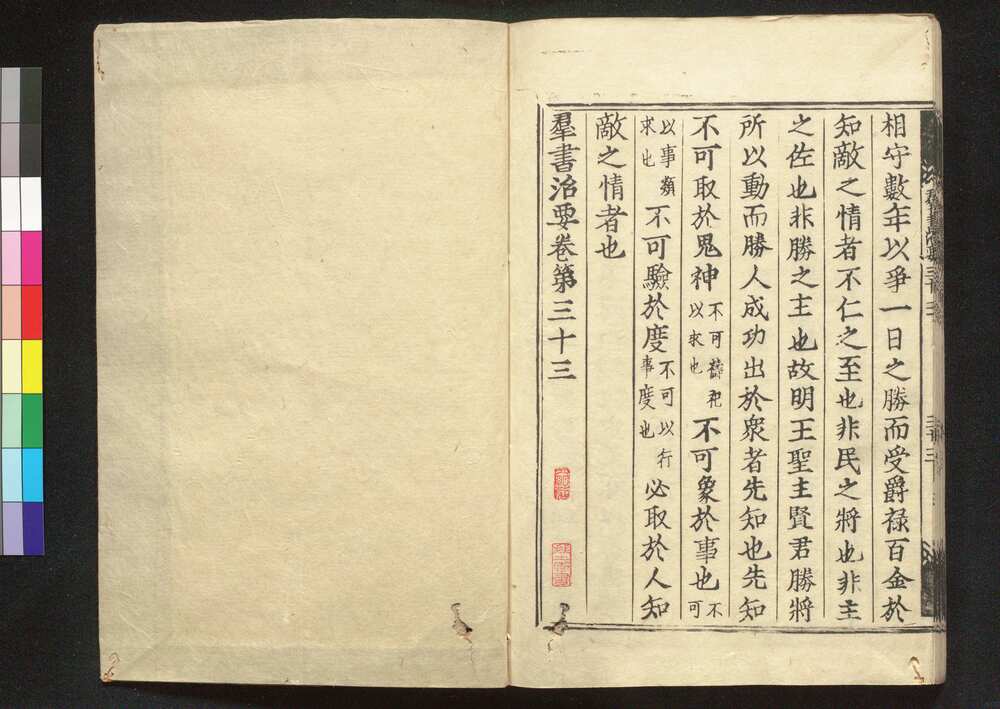 相守數年以爭一日之勝而受爵祿百金於
知敵之情者不仁之至也非民之將也非主
之佐也非勝之主也故明王聖主賢君勝將
所以動而勝人成功出於衆者先知也先知
不可取於鬼神不可禱祀以求也不可象於事也不可
以事類求也不可驗於度不可以行事度也必取於人知
敵之情者也
羣書治要卷第三十三